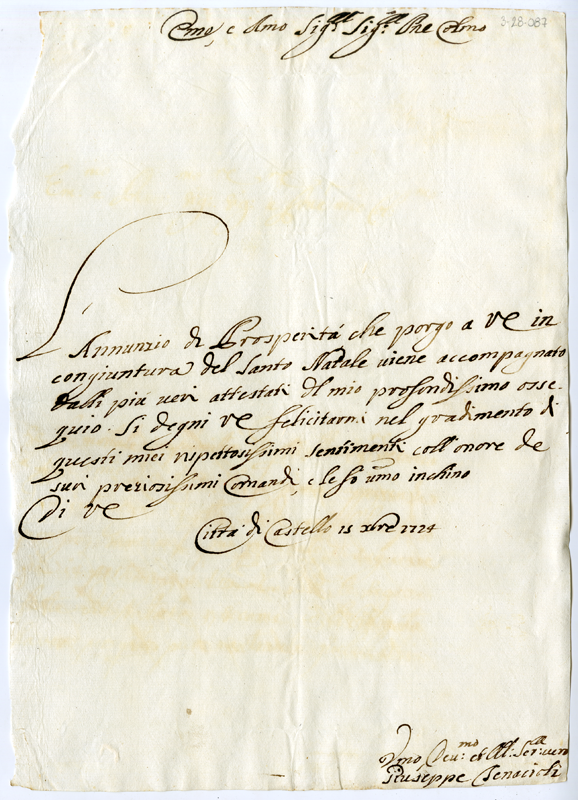 Emo, e Rmo Sig.re Sig.re Pne Colmo
3-28-087
L'Annunzio di Prosperità che porgo a VE in
congiuntura del Santo Natale viene accompagnato
dalli più veri attestati del mio profondissimo osse-
quio. Si degni VE felicitarmi nel gradimento di
questi miei rispettosissimi sentimenti coll'onore de
suoi preziosissimi Comandi, e le fo umo inchino
Di VE
Città di Castello 15 xbre 1724
Umo Devmo et Serre vero
Giuseppe